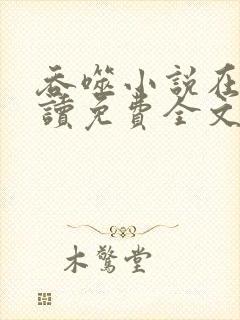 吞噬小説在
讀免費全文
木驚堂